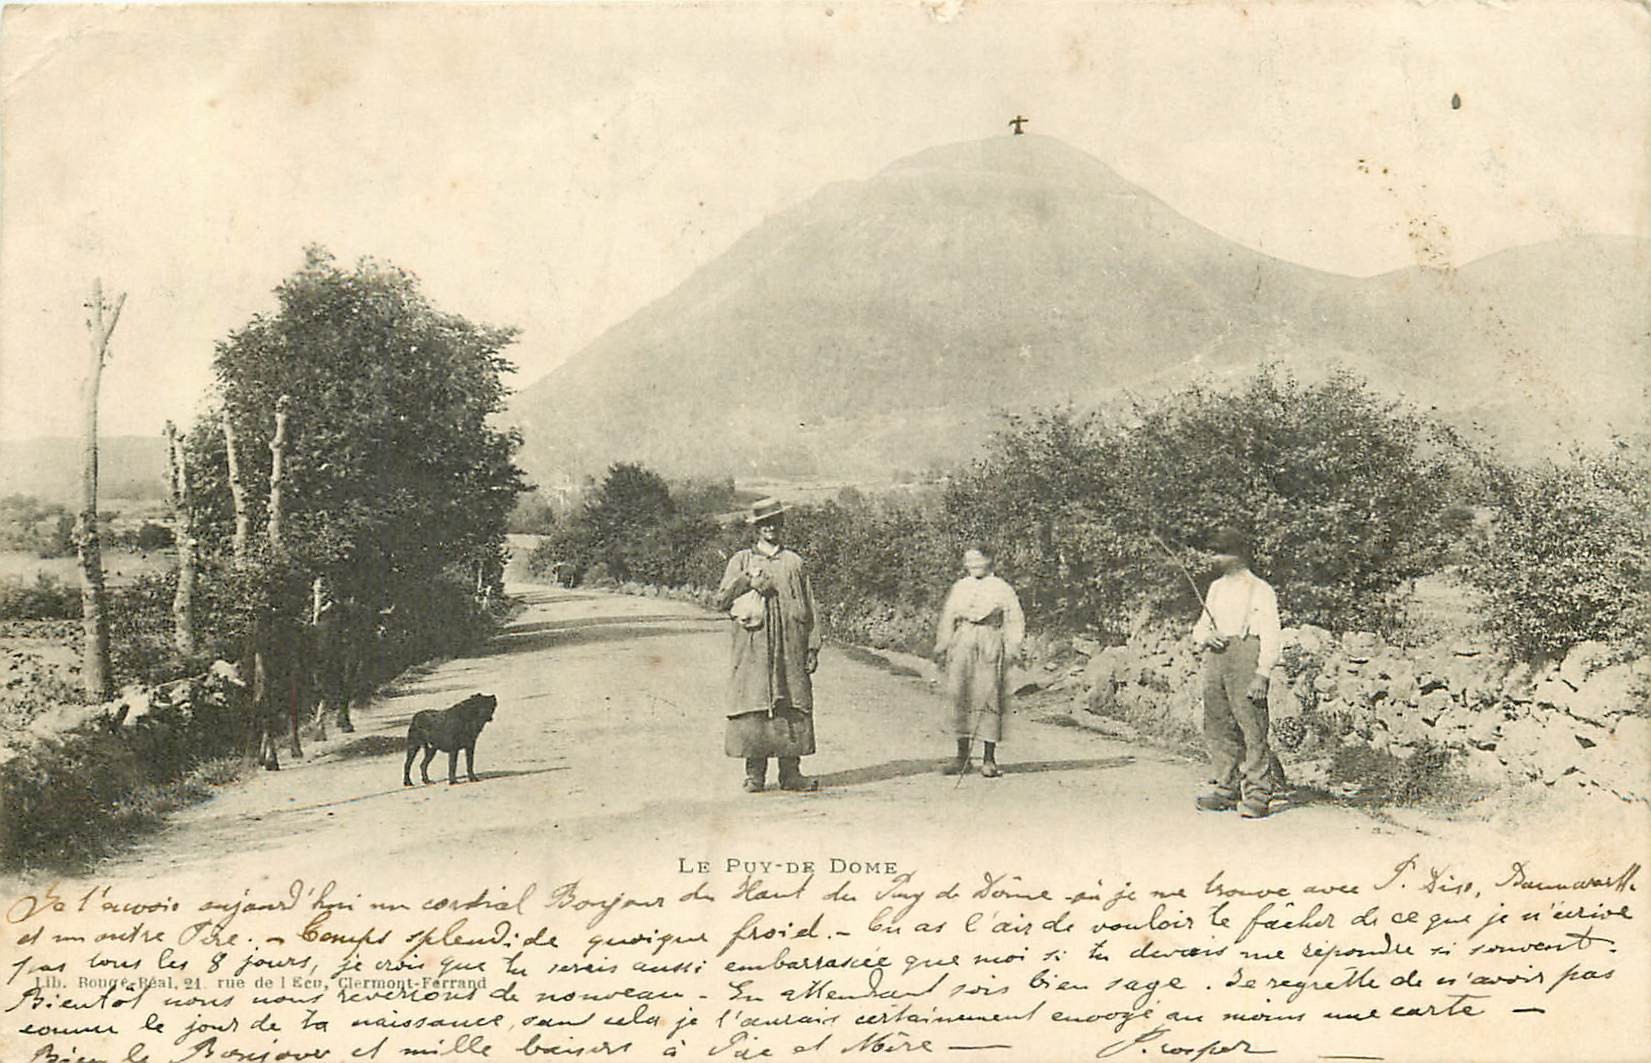 LE PUY-DE DOME
Je t'envoie aujourd'hui un cordial Bonjour du Haut du Puy de Dôme où je me trouve avec P.
et un autre Père. - Temps splendide quoique froid. - Tu as l'air de vouloir te fâcher de ce que je n'écrive
pas tous les 8 jours, je crois que tu serais aussi embarrassée que moi si tu devais me répondre si souvent.
Lib. Rougé-Réal, 21 rue de l'Ecu, Clermont-Ferrand
Bientôt nous nous reverrons de nouveau - En attendant sois bien sage. Je regrette de n'avoir pas
connu le jour de ta naissance, sans cela je t'aurais certainement envoyé au moins une carte -
Bien le Bonjour et mille baisers à Père et Mère - Prosper